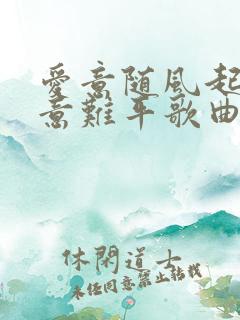 愛意随風起
意難平歌曲
休閑道士
未任同意禁止転載